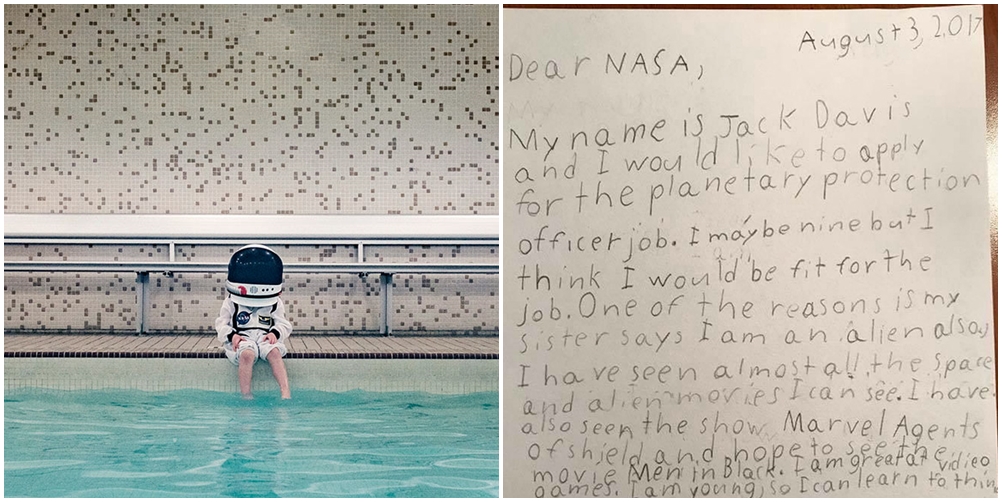 August 3, 2017
Dear NASA,
My name is Jack Davis
and I would like to apply
for the planetary protection
officer job. I may be nine but I
think I would be fit for the
job. One of the reasons is my
sister says I am an alien also,
I have seen almost all the space
and alien movies I can see. I have
also seen the show Marvel Agents
of shield and hope to see the
movie Men in Black. I am great at vidieo
games. I am young, so I can learn to thin